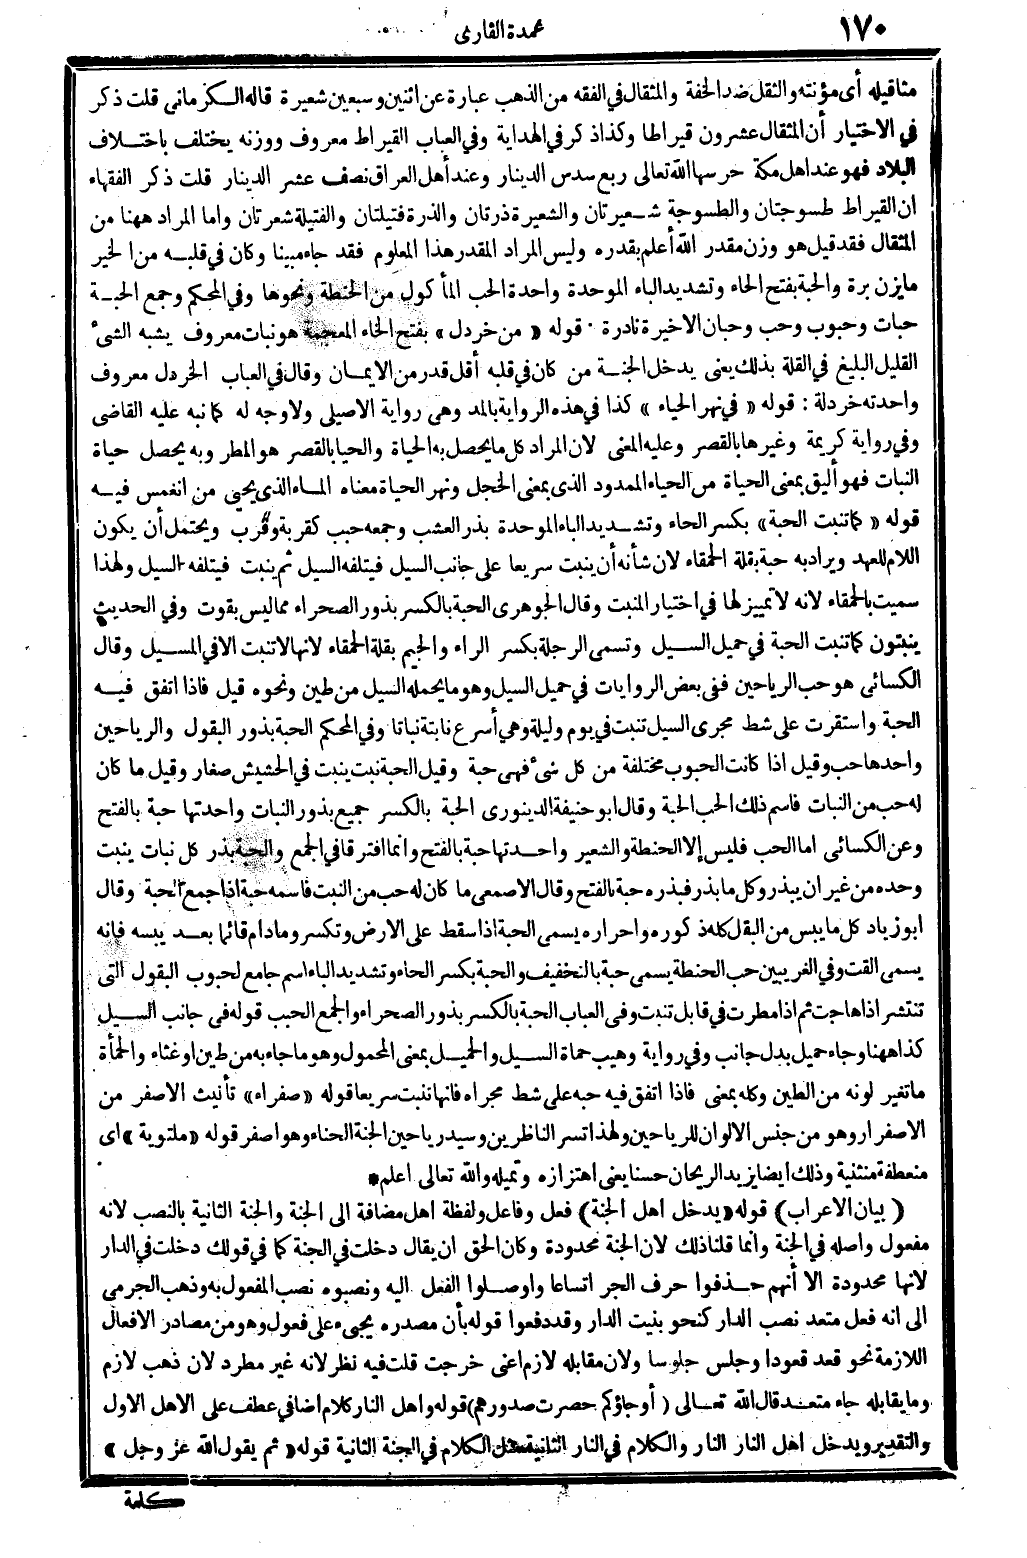 ١٧٠
عمدة القارى
مثاقيله أى مؤنته والثقل ضد الخفة والمثقال فى الفقه من الذهب عبارة عن اثنين وسبعين شعيرة قاله الكرمانى قلت ذكر
فى الاختيار أن المثقال عشرون قيراطا وكذا ذكر فى الهداية وفى العباب القيراط معروف ووزنه يختلف باختلاف
البلاد فهو عند اهل مكة حرسها الله تعالى ربع سدس الدينار وعند أهل العراق نصف عشر الدينار قلت ذكر الفقهاء
ان القيراط طسوجتان والطسوجة شعيرتان والشعيرة ذرتان والذرة فتيلتان والفتيلة شعرتان واما المراد ههنا من
المثقال فقد قيل هو وزن مقدر الله أعلم بقدره وليس المراد المقدر هذا المعلوم فقد جاء مبينا وكان فى قلبه من الخير
مايزن برة والحبة بفتح الحاء وتشديد الباء الموحدة واحدة الحب المأكول من الحنطة ونحوها وفى المحكم وجمع الحبة
حبات وحبوب وحب وحبان الاخيرة نادرة · قوله « من خردل » بفتح الخاء المعجمة هو نبات معروف يشبه الشئ
القليل البليغ فى القلة بذلك يعنى يدخل الجنة من كان فى قلبه أقل قدر من الايمان وقال فى العباب الخردل معروف
واحدته خردلة : قوله « فى نهر الحياء » كذا فى هذه الرواية بالمد وهى رواية الاصيلى ولا وجه له كما نبه عليه القاضى
وفى رواية كريمة وغيرها بالقصر وعليه المعنى لان المراد كل ما يحصل به الحياة والحيا بالقصر هو المطر وبه يحصل حياة
النبات فهو أليق بمعنى الحياة من الحياء الممدود الذى بمعنى الخجل ونهر الحياة معناه الماء الذى يحيى من انغمس فيه
قوله « كما تنبت الحبة » بكسر الحاء وتشديد الباء الموحدة بذر العشب وجمعه حبب كقربة وقرب ويحتمل أن يكون
اللام للعهد ويراد به حبة بقلة الحمقاء لان شأنه أن ينبت سريعا على جانب السيل فيتلفه السيل ثم ينبت فيتلفه السيل ولهذا
سميت بالحمقاء لانه لا تمييز لها فى اختيار المنبت وقال الجوهرى الحبة بالكسر بذور الصحراء مما ليس بقوت وفى الحديث
ينبتون كما تنبت الحبة فى حميل السيل وتسمى الرجلة بكسر الراء والجيم بقلة الحمقاء لانها لا تنبت الا فى المسيل وقال
الكسائى هو حب الرياحين ففى بعض الروايات فى حميل السيل وهو ما يحمله السيل من طين ونحوه قيل فاذا اتفق فيه
الحبة واستقرت على شط مجرى السيل تنبت فى يوم وليلة وهى أسرع نابتة نباتا وفى المحكم الحبة بذور البقول والرياحين
واحدها حب وقيل اذا كانت الحبوب مختلفة من كل شئ فهى حبة وقيل الحبة نبت ينبت فى الحشيش صغار وقيل ما كان
له حب من النبات فاسم ذلك الحب الحبة وقال ابو حنيفة الدينورى الحبة بالكسر جميع بذور النبات واحدتها حبة بالفتح
وعن الكسائى اما الحب فليس إلا الحنطة والشعير واحدتها حبة بالفتح وانما افترقا فى الجمع والحبة بذر كل نبات ينبت
وحده من غير ان يبذر وكل ما بذر فبذره حبة بالفتح وقال الاصمعى ما كان له حب من النبت فاسمه حبة اذا جمع الحبة وقال
ابو زياد كل ما يبس من البقل كله ذكوره واحراره يسمى الحبة اذا سقط على الارض وتكسر وما دام قائما بعد يبسه فإنه
يسمى القت وفى الغريبين حب الحنطة يسمى حبة بالتخفيف والحبة بكسر الحاء وتشديد الباء اسم جامع لحبوب البقول التى
تنتشر اذا هاجت ثم اذا مطرت فى قابل تنبت وفى العباب الحبة بالكسر بذور الصحراء والجمع الحبب قوله فى جانب السيل
كذا ههنا وجاء حميل بدل جانب وفى رواية وهيب حماة السيل والحميل بمعنى المحمول وهو ما جاء به من طين او غثاء والحمأة
ما تغير لونه من الطين وكله بمعنى فاذا اتفق فيه حبه على شط مجراه فانها تنبت سريعا قوله « صفراء » تأنيث الاصفر من
الاصفرار وهو من جنس الالوان للرياحين ولهذا تسر الناظرين وسيد رياحين الجنة الحناء وهو اصفر قوله « ملتوية » اى
منعطفة منثنية وذلك ايضا يزيد الريحان حسنا يعنى اهتزازه وتميله والله تعالى اعلم *
( بيان الاعراب ) قوله « يدخل اهل الجنة ) فعل وفاعل ولفظة اهل مضافة الى الجنة والجنة الثانية بالنصب لانه
مفعول واصله فى الجنة وانما قلنا ذلك لان الجنة محدودة وكان الحق ان يقال دخلت فى الجنة كما فى قولك دخلت فى الدار
لانها محدودة الا أنهم حذفوا حرف الجر اتساعا واوصلوا الفعل اليه ونصبوه نصب المفعول به وذهب الجرمى
الى انه فعل متعد نصب الدار كنحو بنيت الدار وقد دفعوا قوله بأن مصدره يجىء على فعول وهو من مصادر الافعال
اللازمة نحو قعد قعودا وجلس جلوسا ولان مقابله لازم اعنى خرجت قلت فيه نظر لانه غير مطرد لان ذهب لازم
وما يقابله جاء متعد قال الله تعالى ( أوجاؤكم حصرت صدورهم) قوله واهل النار كلام اضافى عطف على الاهل الاول
والتقدير ويدخل اهل النار النار والكلام فى النار الثانية مثل الكلام فى الجنة الثانية قوله « ثم يقول الله عز وجل »
كلمة